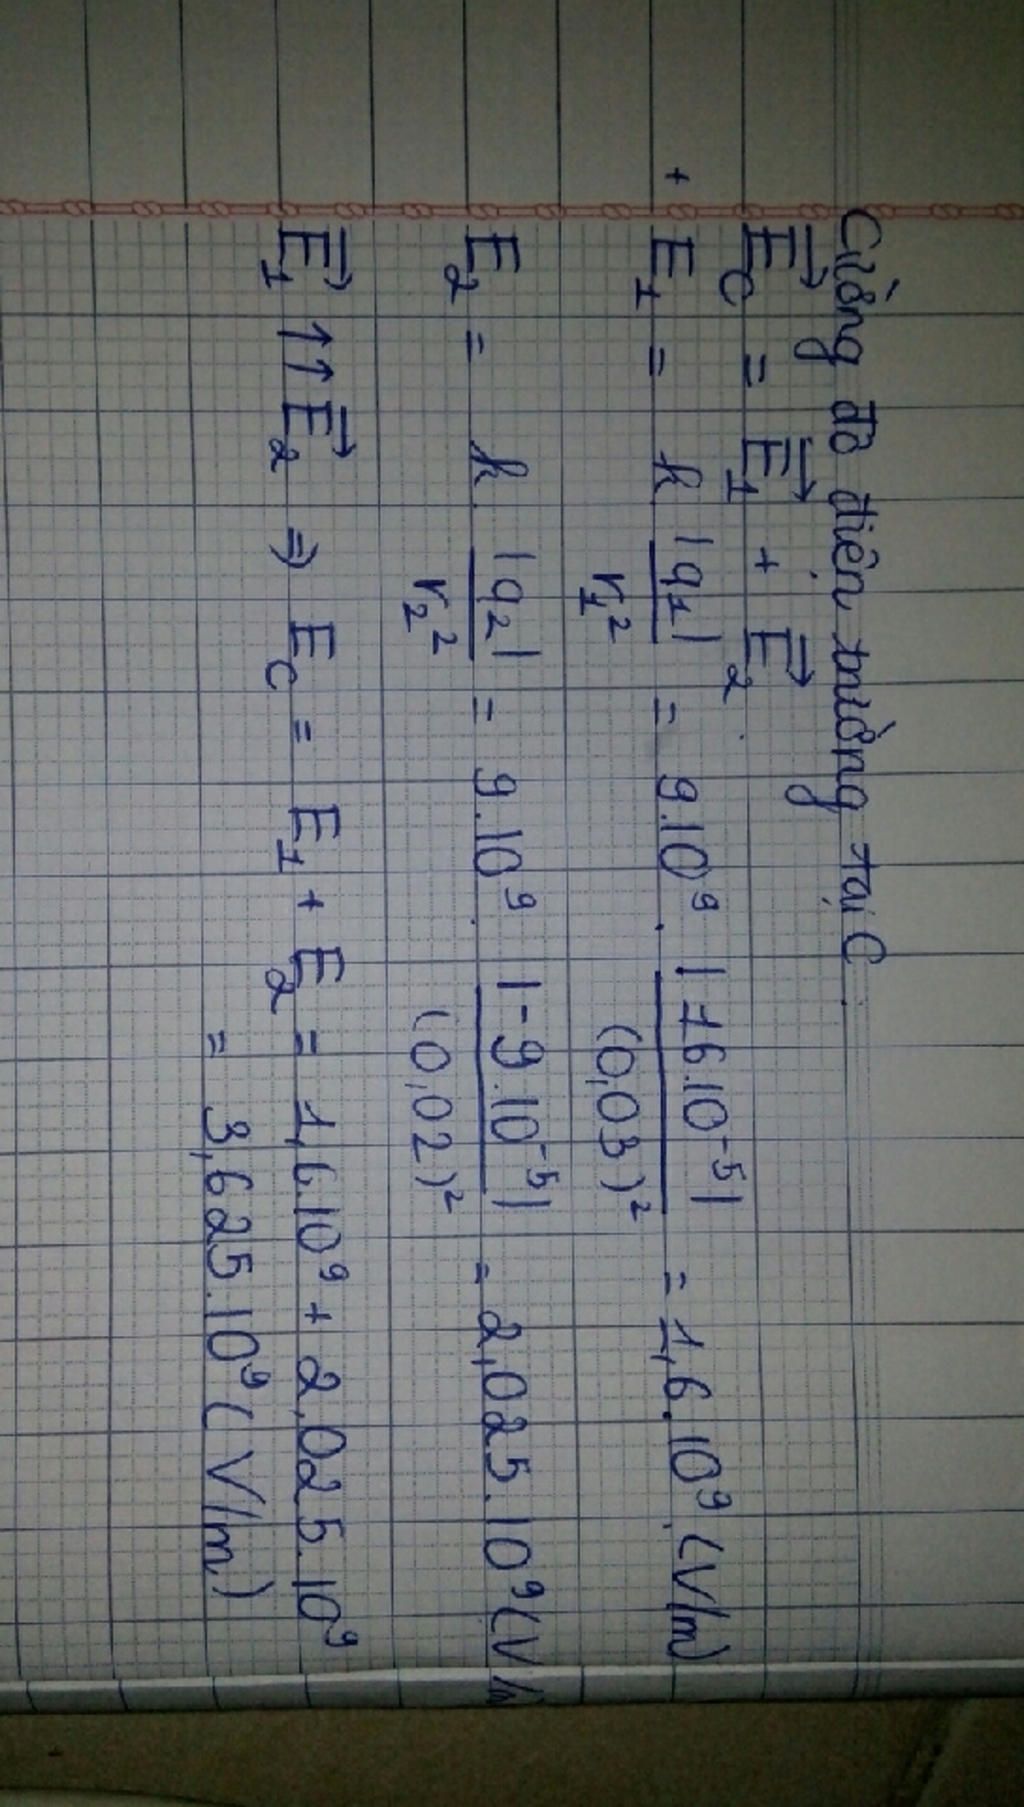 Cường độ điện trường tại C
E⃗_C = E⃗_1 + E⃗_2
+ E_1 = k |q_1| / r_1² = 9.10⁹ . |16.10⁻⁵| / (0,03)² = 1,6.10⁹ (V/m)
E_2 = k |q_2| / r_2² = 9.10⁹ . |-9.10⁻⁵| / (0,02)² = 2,025.10⁹ (V/m
E⃗_1 ↑↑ E⃗_2 ⇒ E_C = E_1 + E_2 = 1,6.10⁹ + 2,025.10⁹
= 3,625.10⁹ (V/m)